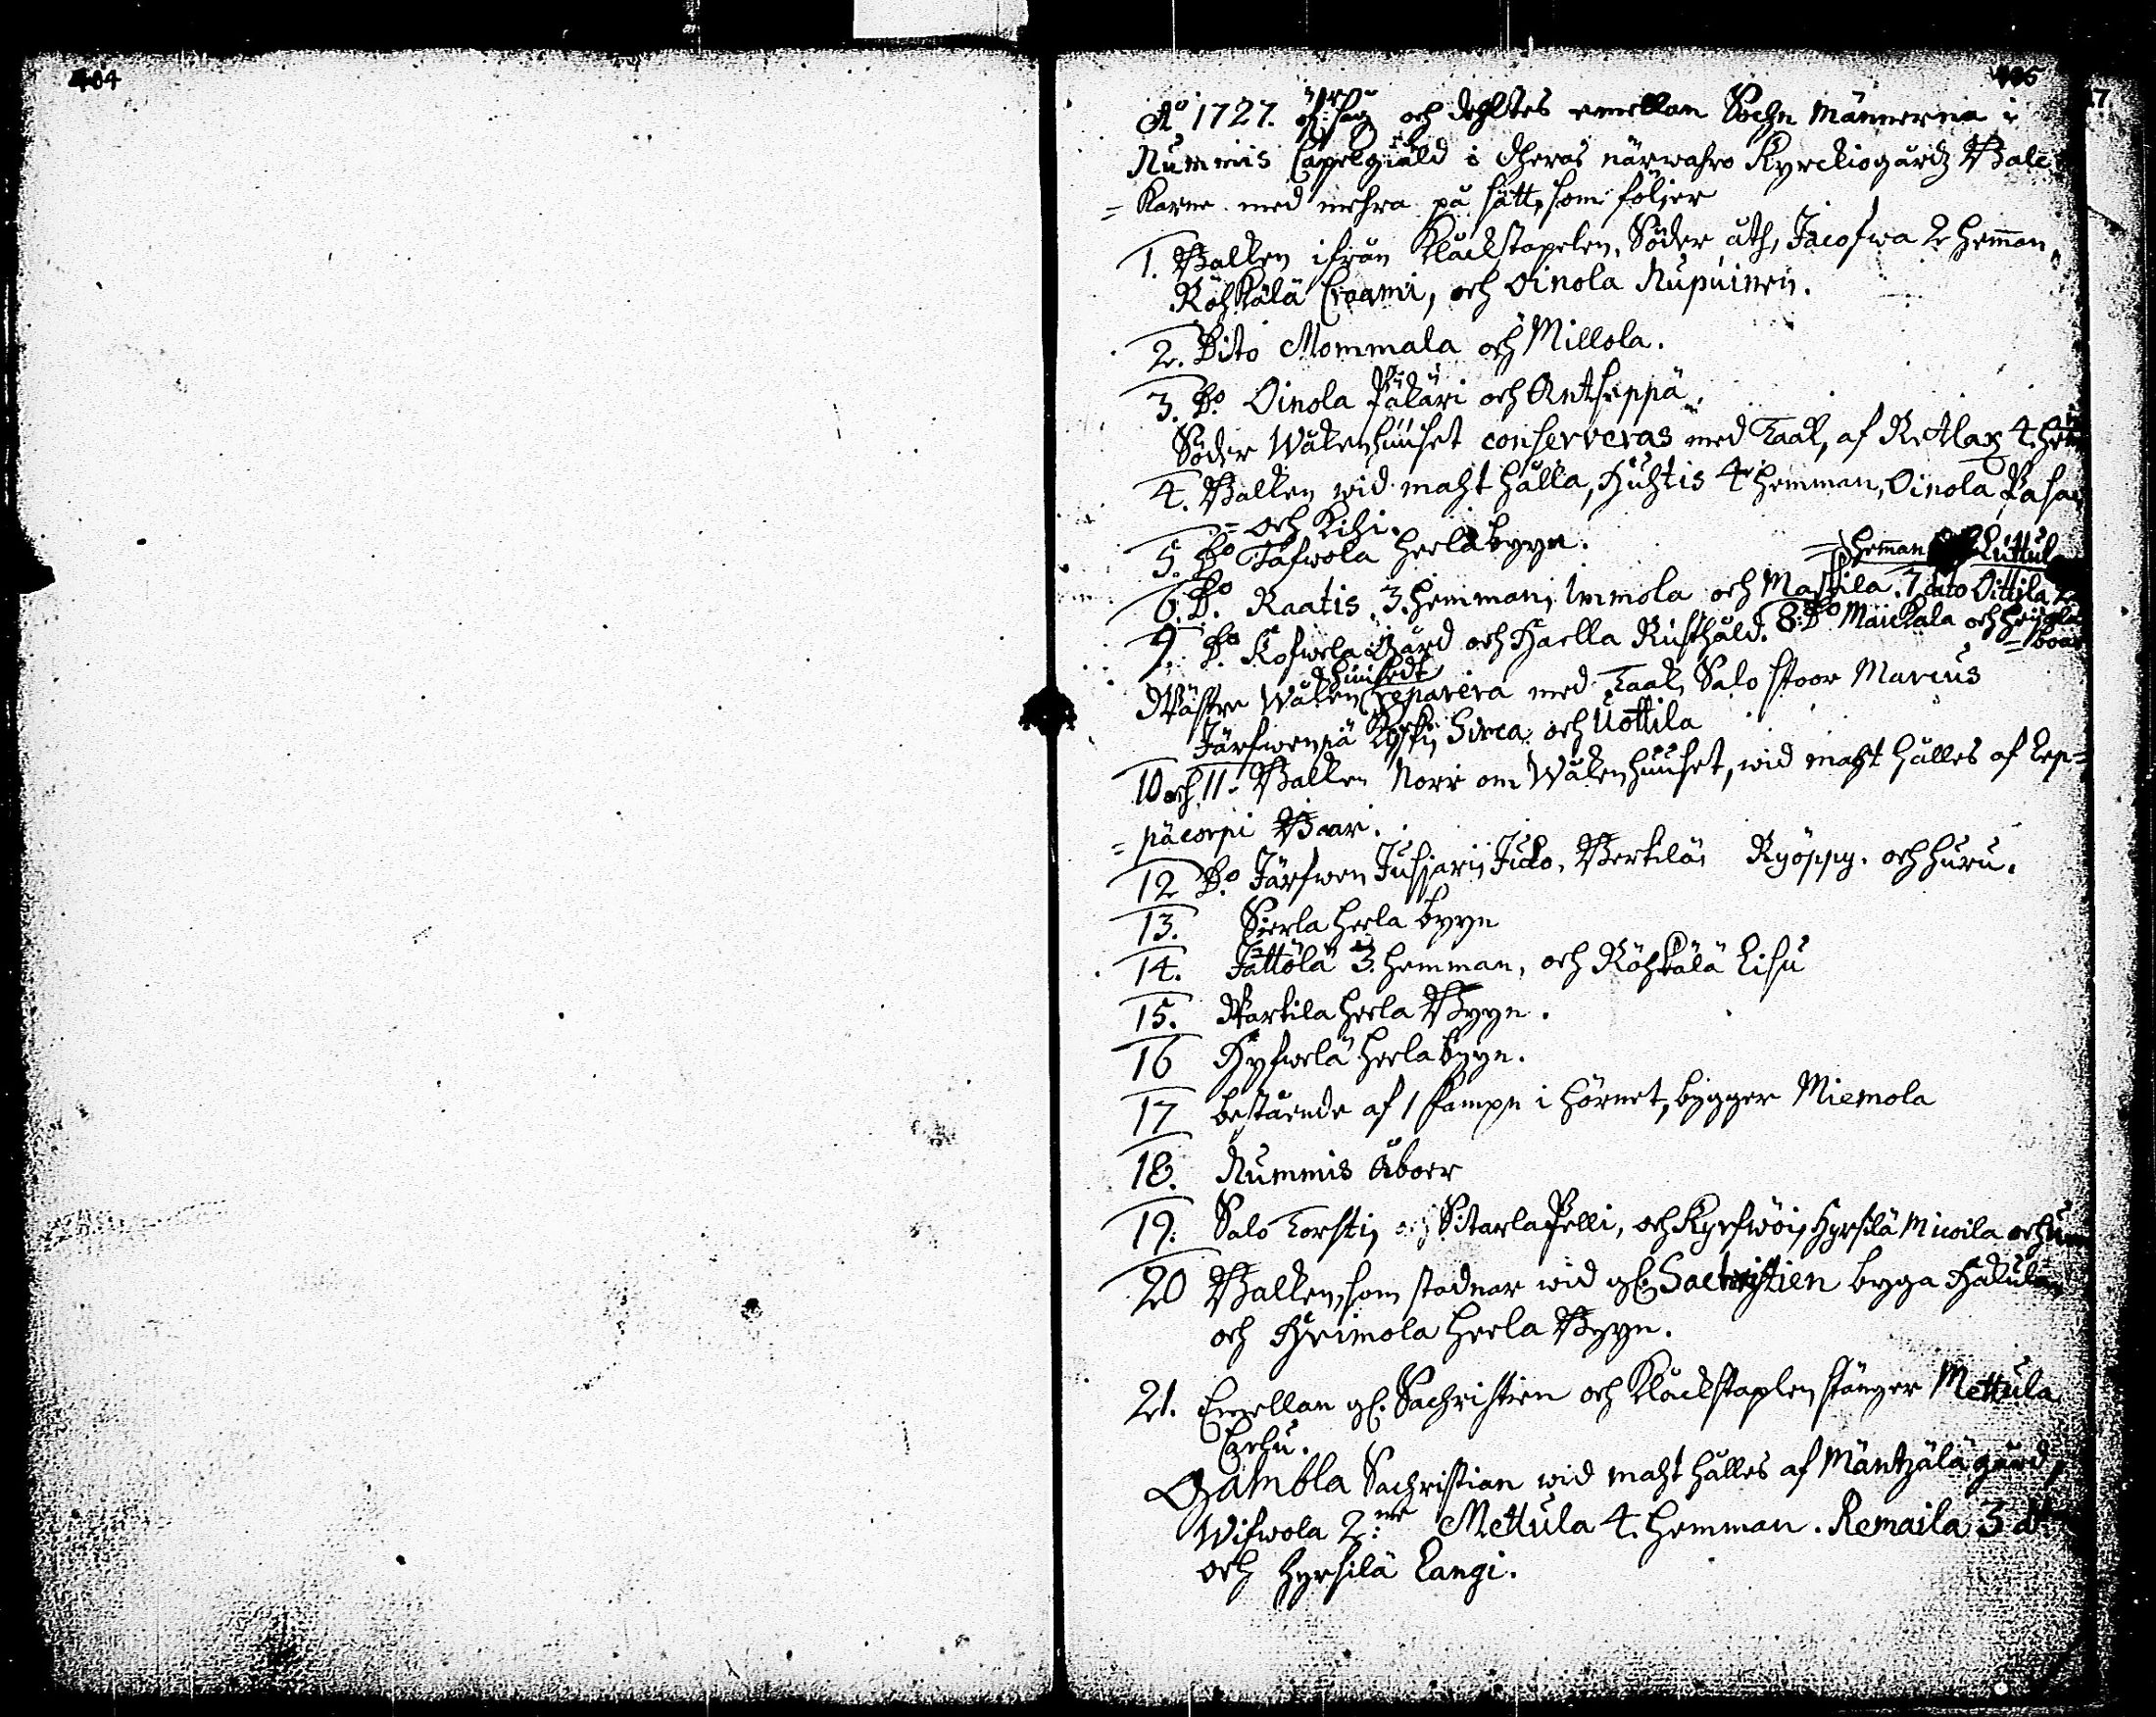 404
405
17
Aº 1727. och dehltes emellan Sochn Männerna i
Nummis Capelgiäld i dheras närwahro Kyrckiogårdz Balc
= karne med mehra på sätt, som följer
1. Balken ifrån Klåckstapelen, Söder uth, Jacofwa 2 heman
Röhkälä Eraami, och Oinola Nupuinen.
2. Dito Mommala och Millola.
3. Dº Oinola Päkäri och Antseppä.
Söder Wåkenhuuset conserveras med Taak, af Retlax 4. hem
4. Balken wid macht hålla, Huhtis 4 hemman, Oinola Pasa
= och Kihi.
5. Dº Tafwola heela byyn.
= heman Luttula
6. Dº Raatis 3. hemman, Immola och Maskila. 7 dito Oittila 2
9. Dº Kofwela Gård och Haella Rusthåld. 8. Dº Maickala och
= boar
huusedt
Wästre Wåken reparera med Taak, Salo stoor Marcus
Järfwenpä Sirca och Uottila
10 och 11. Balken Norr om Wåkenhuuset, wid macht hålles af Lep=
= päcorpi Boar.
12 Dº Järfwen Jusjari, Juko, Bertilä, Ryöppy. och huru.
13. Sierla heela byyn
14. Jättölä 3. hemman, och Röhkälä Lisu
15. Wartila heela Byyn.
16 Hyfwelä heela byyn.
17 bestående af 1 fampn i hörnet, bygger Miemola
18. Nummis Åboer
19. Salo Torsti, Sitarla Pelli, och Kyrfwöis, Hyrsilä Micoila och
20 Balken, som stadnar wid gl. Sachristien byga Hakula,
och Heimola heela Byyn.
21. Emellan gl. Sachristien och Klåckstaplen, stänger Mettula
Carhu.
Gambla Sachristian wid macht hålles af Mäntzälä gård,
Wifwola 2:ne Mettula 4. hemman. Remaila 3 dº
och Hyrsilä Langi.